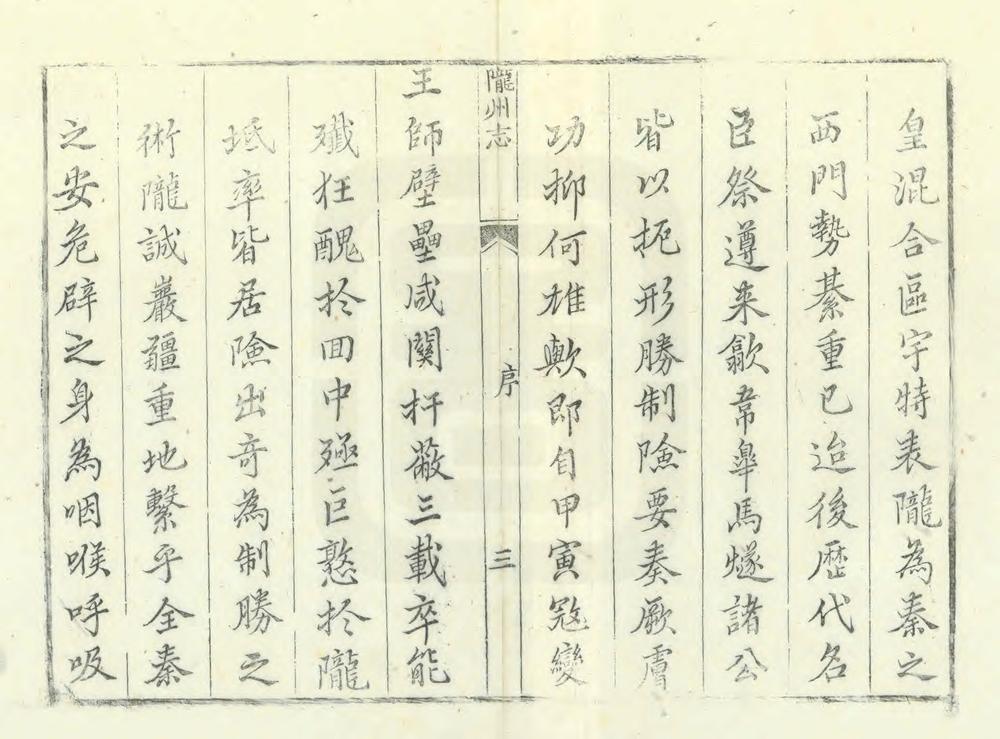 皇混合區宇特表隴為秦之
西門勢綦重已迨後歷代名
臣祭遵来歙韋皐馬燧諸公
皆以扼形勝制險要奏厥膚
功抑何雄歟即自甲寅冦變
隴州志 序 三
王師壁壘咸關扞蔽三載卒能
殲狂醜扵回中殛巨憝扵隴
坻率皆居險出奇為制勝之
術隴誠巖疆重地繫乎全秦
之安危辟之身為咽喉呼吸